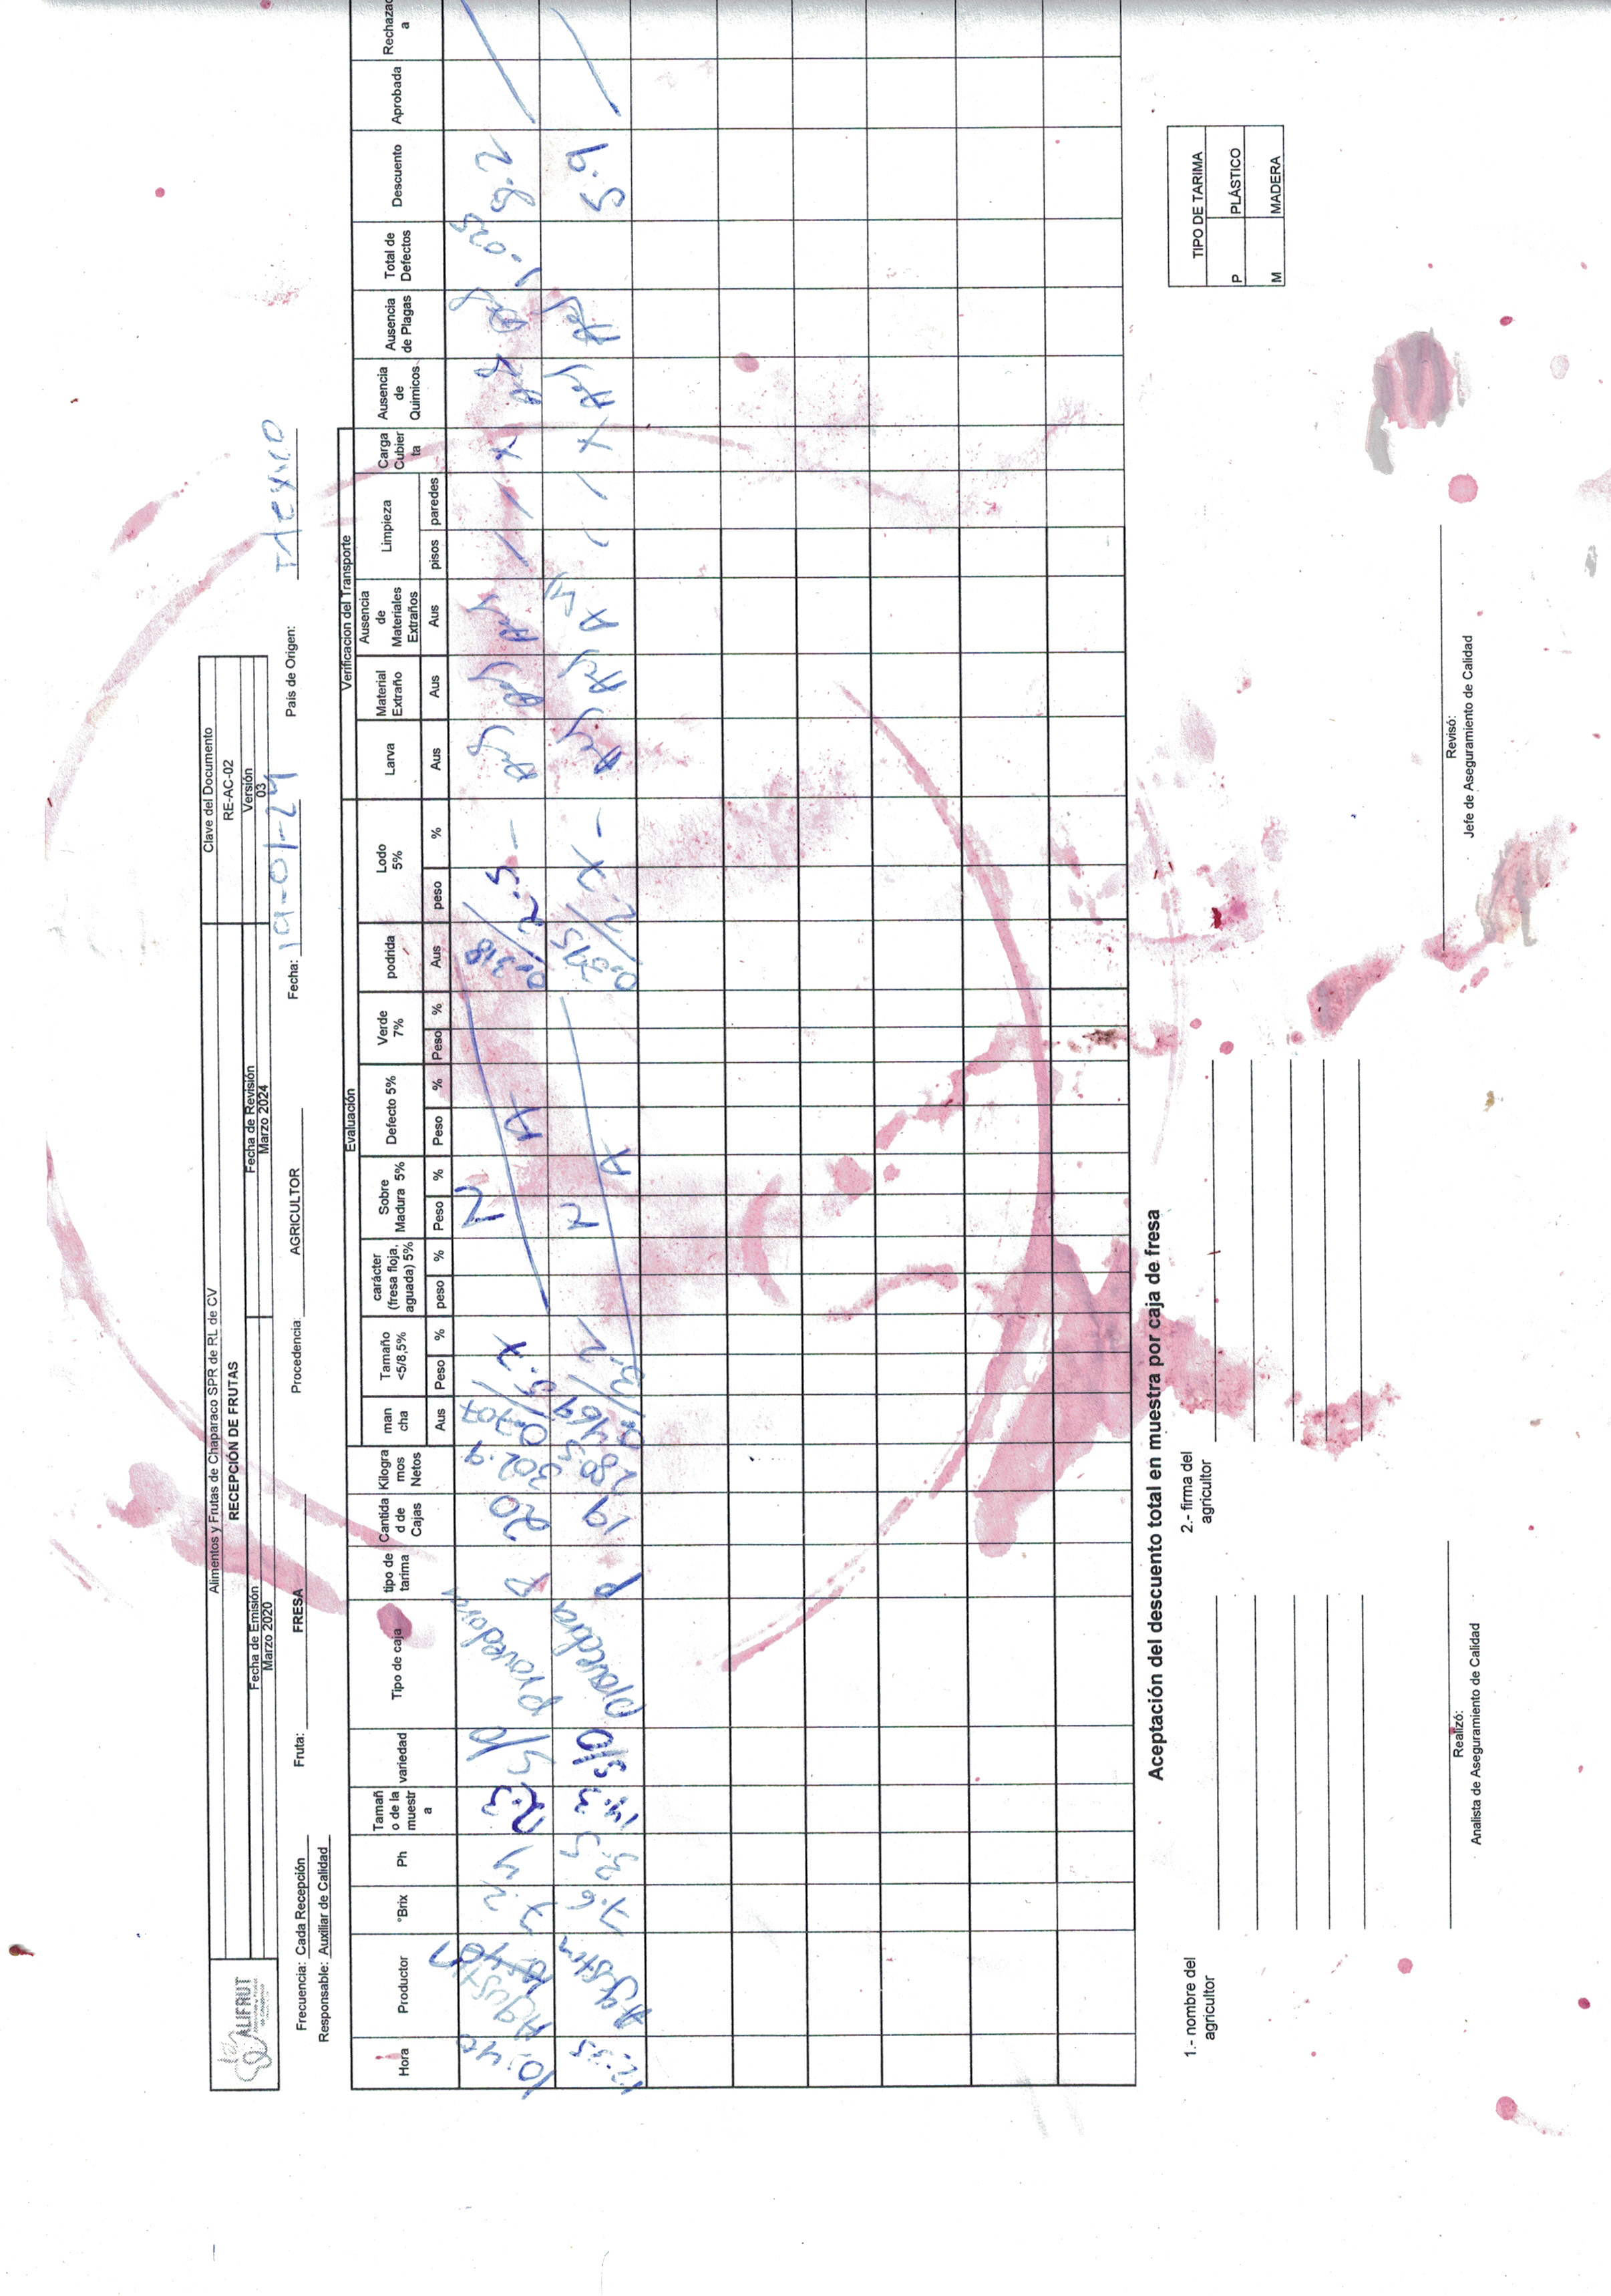 Alimentos y Frutas de Chaparaco SPR de RL de CV
RECEPCIÓN DE FRUTAS
Fecha de Emisión
Marzo 2020
Fecha de Revisión
Marzo 2024
Clave del Documento
RE-AC-02
Versión
03
ALIFRUT
Frecuencia: Cada Recepción
Fruta: FRESA
Procedencia: AGRICULTOR
Fecha: 19-01-24
País de Origen: Mexico
Responsable: Auxiliar de Calidad
Evaluación
Verificacion del Transporte
Hora
Productor
°Brix
Ph
Tamañ
o de la
muestr
a
variedad
Tipo de caja
tipo de
tarima
Cantida
d de
Cajas
Kilogra
mos
Netos
man
cha
Aus
Tamaño
<5/8,5%
Peso %
carácter
(fresa floja,
aguada) 5%
peso %
Sobre
Madura 5%
Peso %
Defecto 5%
Peso %
Verde
7%
Peso %
podrida
Aus
Lodo
5%
peso %
Larva
Aus
Material
Extraño
Aus
Ausencia
de
Materiales
Extraños
Aus
Limpieza
pisos paredes
Carga
Cubier
ta
Ausencia
de
Quimicos
Ausencia
de Plagas
Total de
Defectos
Descuento
Aprobada
Rechazad
a
10:40 Agustin 7.2 4 12.3 S/O Provedora P 20 302.9 0.707/5.7 N A 0.318/2.5 - Aus Aus Aus / / x Aus Aus 1-025 8.2 /
12:35 Agustin 7.6 3.5 14.3 S/O Provedora P 19 0.469/3.2 N A 2.7 - Aus Aus Aus / / x Aus Aus 5.9 /
Aceptación del descuento total en muestra por caja de fresa
1.- nombre del
agricultor
2.- firma del
agricultor
TIPO DE TARIMA
P PLÁSTICO
M MADERA
Realizó:
Analista de Aseguramiento de Calidad
Revisó:
Jefe de Aseguramiento de Calidad